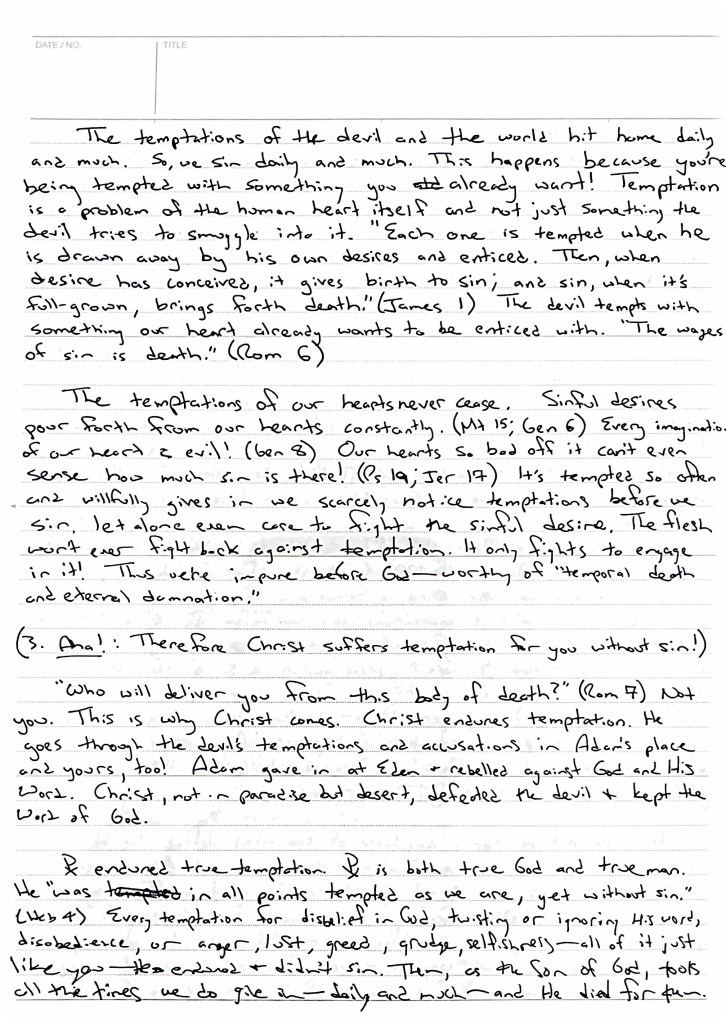 DATE / NO.
TITLE
The temptations of the devil and the world hit home daily
and much. So, we sin daily and much. This happens because you're
being tempted with something you already want! Temptation
is a problem of the human heart itself and not just something the
devil tries to smuggle into it. "Each one is tempted when he
is drawn away by his own desires and enticed. Then, when
desire has conceived, it gives birth to sin; and sin, when it's
full-grown, brings forth death." (James 1) The devil tempts with
something our heart already wants to be enticed with. "The wages
of sin is death." (Rom 6)
The temptations of our hearts never cease. Sinful desires
pour forth from our hearts constantly. (Mt 15; Gen 6) Every imaginatio
of our heart is evil! (Gen 8) Our hearts so bad off it can't even
sense how much sin is there! (Ps 19; Jer 17) It's tempted so often
and willfully gives in we scarcely notice temptations before we
sin, let alone even care to fight the sinful desire. The flesh
won't ever fight back against temptation. It only fights to engage
in it! Thus we're impure before God—worthy of "temporal death
and eternal damnation."
(3. Aha!: Therefore Christ suffers temptation for you without sin!)
"Who will deliver you from this body of death?" (Rom 7) Not
you. This is why Christ comes. Christ endures temptation. He
goes through the devil's temptations and accusations in Adam's place
and yours, too! Adam gave in at Eden + rebelled against God and His
Word. Christ, not in paradise but desert, defeated the devil + kept the
Word of God.
endured true temptation. is both true God and true man.
He "was in all points tempted as we are, yet without sin."
(Heb 4) Every temptation for disbelief in God, twisting or ignoring His word,
disobedience, or anger, lust, greed, grudge, selfishness—all of it just
like you — endured + didn't sin. Then, as the Son of God, took
all the times we do give in—daily and much—and He died for